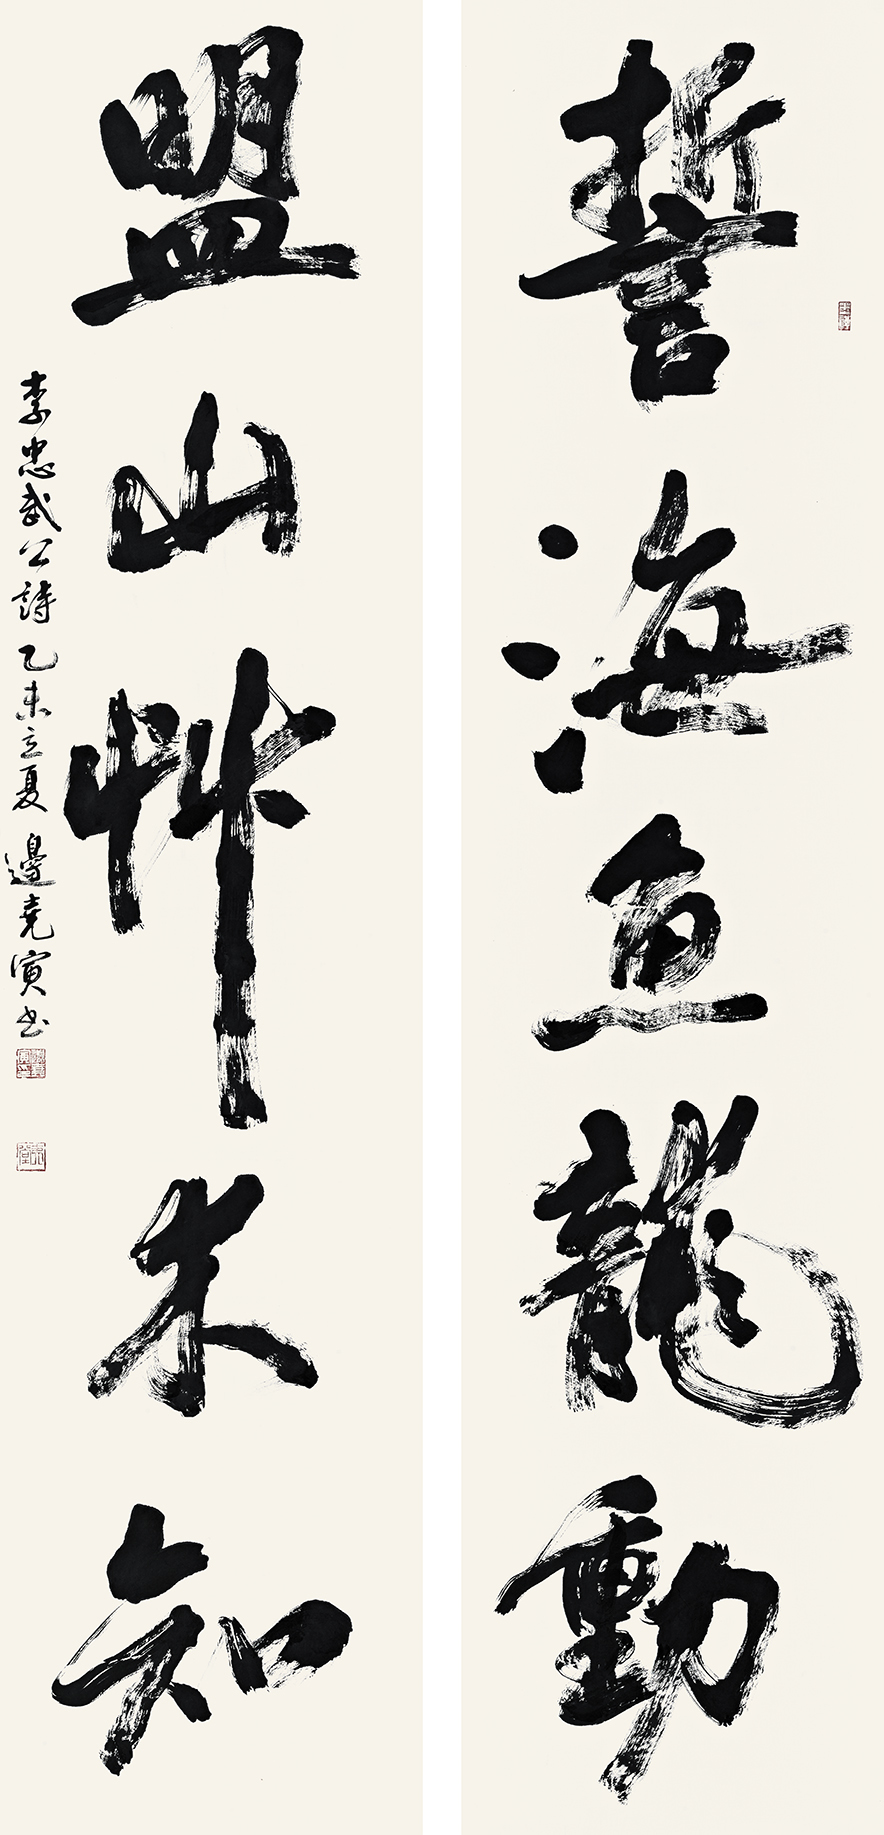 誓海鱼龍動
盟山艸木知
李忠武公詩 乙未立夏 邊堯寅书